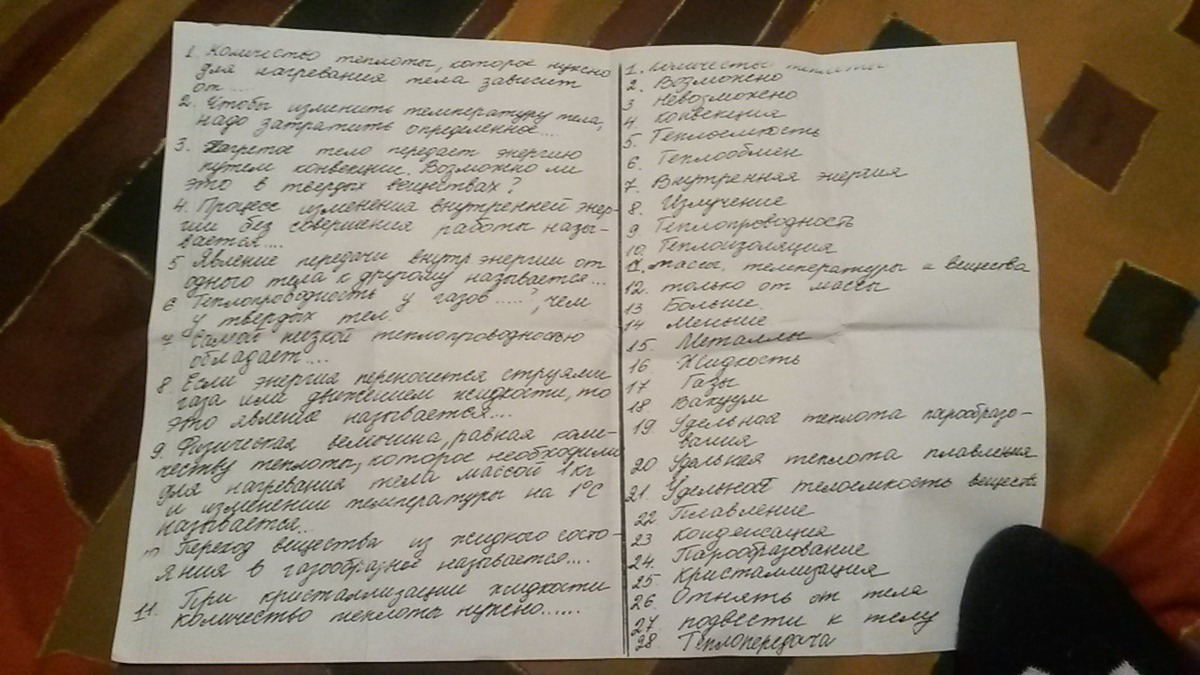 1. Количество теплоты, которое нужно
для нагревания тела зависит
от ....
2. Чтобы изменить температуру тела,
надо затратить определенное....
3. Нагретое тело передает энергию
путем конвекции. Возможно ли
это в твердых веществах?
4. Процесс изменения внутренней энер-
гии без совершения работы назы-
вается....
5 Явление передачи внутр энергии от
одного тела к другому называется...
6 Теплопроводность у газов .....?, чем
у твердых тел
7 Самой низкой теплопроводностью
обладает....
8. Если энергия переносится струями
газа или движением жидкости, то
это явление называется....
9. Физическая величина, равная коли-
честву теплоты, которое необходимо
для нагревания тела массой 1 кг
и изменении температуры на 1°С
называется...
Переход вещества из жидкого состо-
яния в газообразное называется....
11. При кристаллизации жидкости
количество теплоты нужно......
1. Количество теплоты
2. Возможно
3 Невозможно
4 Конвекция
5. Теплоемкость
6. Теплообмен
7. Внутренняя энергия
8. Излучение
9. Теплопроводность
10. Теплоизоляция
11. массы, температуры и вещества
12. только от массы
13 Больше
14 Меньше
15. Металлы
16. Жидкость
17 Газы
18. Вакуум
19 Удельная теплота парообразо-
вания
20. Удельная теплота плавления
21. Удельной телоемкость веществ
22 Плавление
23 Конденсация
24. Парообразование
25. Кристаллизация
26. Отнять от тела
27. подвести к телу
28. Теплопередача